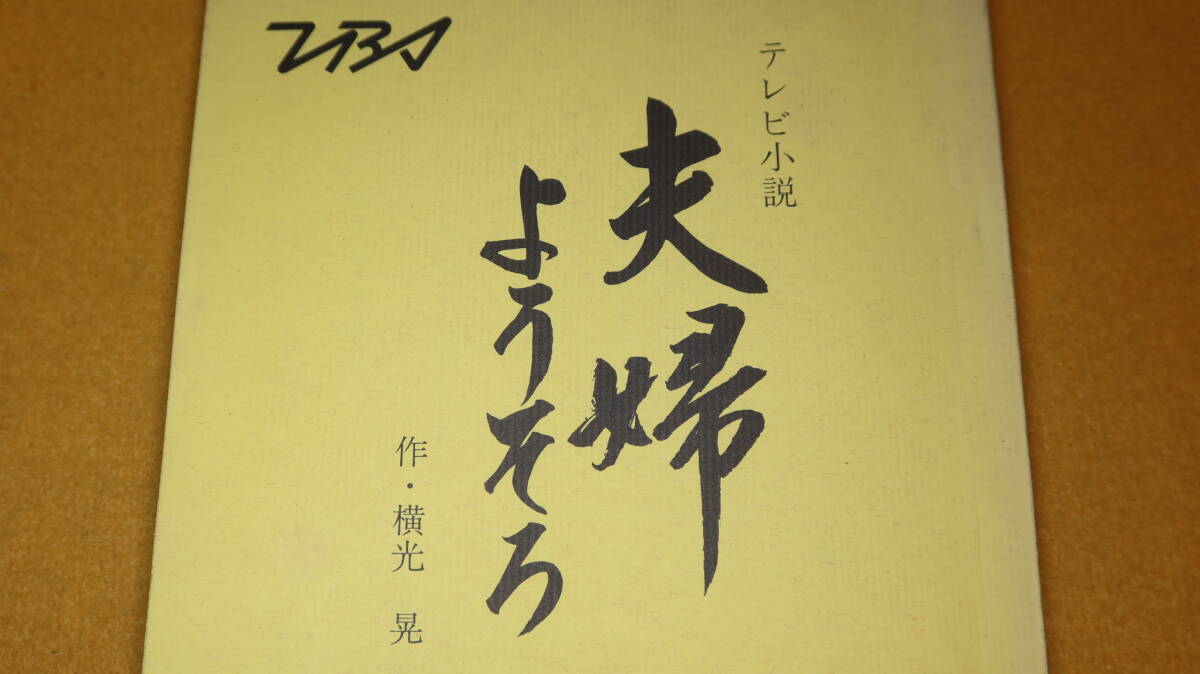 TBS
テレビ小説
夫婦
ようそろ
作・横光 晃